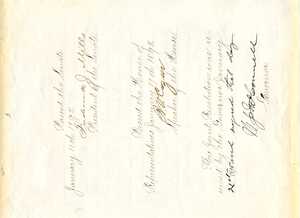 Passed the Senate
January 11th 1892
President of the Senate
Passed the House of
Representatives January 19th 1892
Speaker of the House
This Joint Resolution was re
ceived by the Governor January
and signed this day
Governor